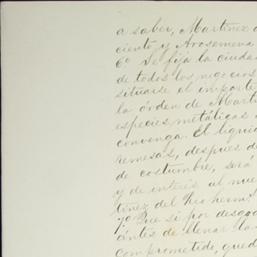 a saber, Martinez d
ciento y Arosemena
6º Se fija la ciuda
de todos los negocios
situarse el importe
la órden de Marti
especies metálicas
convenga. El liqui
remesas, despues de
de costumbre, será
y de interés al nue
tinez del Rio herm
7º Que si por desgra
ántes de llenar la
comprometido, qued